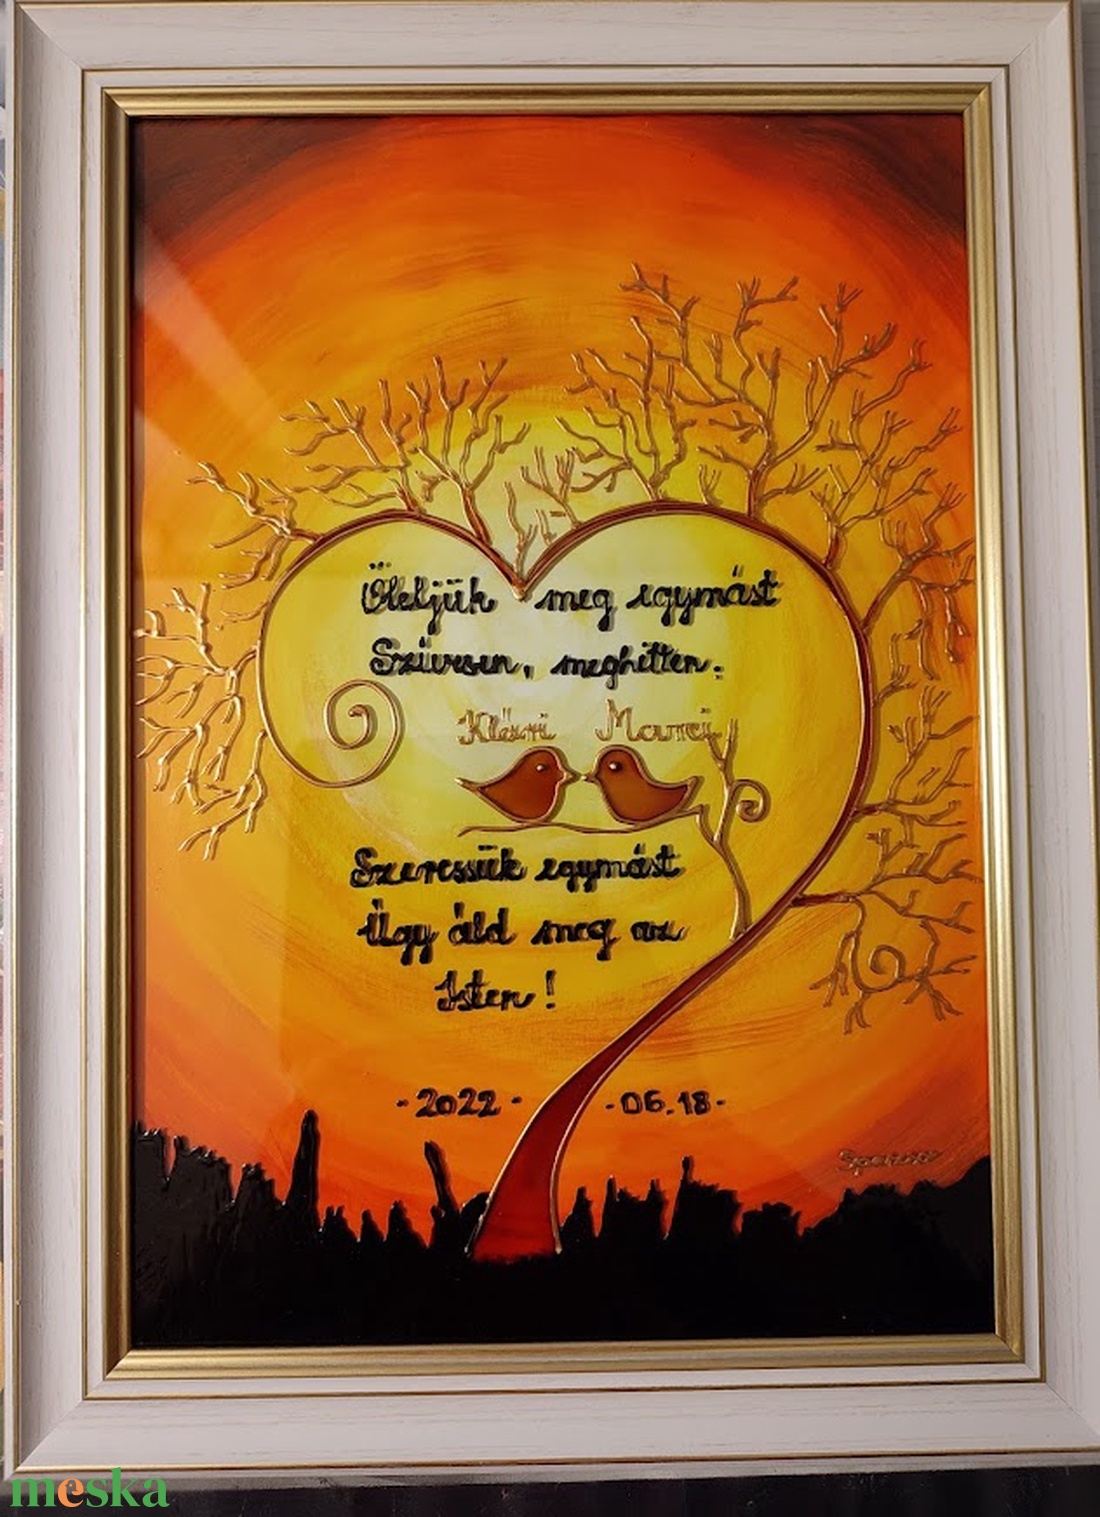 Öleljük meg egymást
Szívesen, meghitten.
Klári Marci
Szeressük egymást
Úgy áld meg az
Isten!
-2022- -06.18-
meska